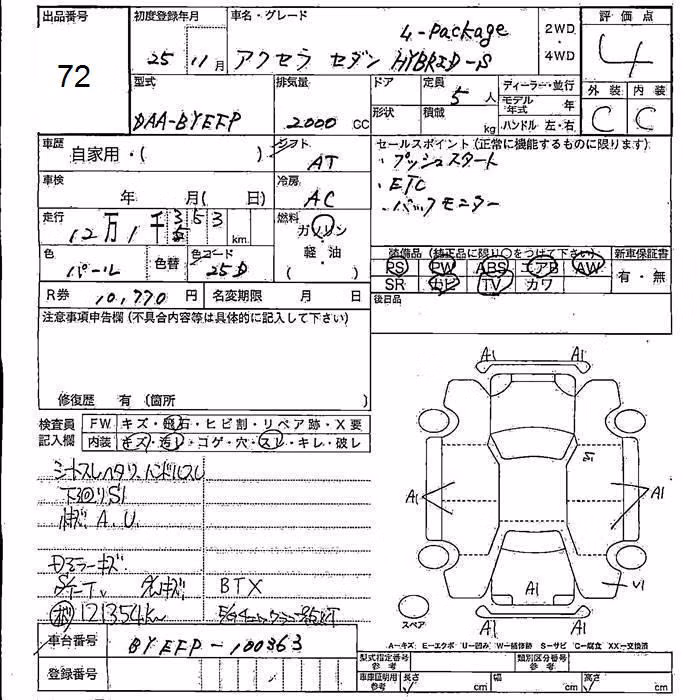 出品番号
72
初度登録年月
25 11月
車名・グレード
4-Package
アクセラ セダン HYBRID-S
2WD
・
4WD
評価点
4
外装 内装
C C
型式
DAA-BYEFP
排気量
2000 CC
ドア
形状
定員
5 人
積載
kg
ディーラー・並行
モデル年式 年
ハンドル 左・右
車歴
自家用・( )
シフト
AT
セールスポイント(正常に機能するものに限ります)
・プッシュスタート
・ETC
・バックモニター
車検
年 月( 日)
冷房
AC
走行
12万1千353 km
燃料
ガソリン
・
軽・油
( )
色
パール
色替
色コード
25D
装備品(純正品に限り○をつけて下さい)
PS PW ABS エアB AW
SR ナビ TV カワ
新車保証書
有・無
後日品
R券 10,770円
名変期限 月 日
注意事項申告欄(不具合内容等は具体的に記入して下さい)
修復歴 有(箇所 )
検査員
記入欄
FW キズ・飛石・ヒビ割・リペア跡・X要
内装 キズ・汚レ・コゲ・穴・スレ・キレ・破レ
シートスレヘタリ、ハンドルスレ
下回りS1
A、U
Dミラーキズ
BTX
121354km
車台番号
BYEFP-100363
登録番号
A1 A1
S1
A1 A1
A1
U1
A1 A1
スペア
A-キズ E-エクボ U-凹ミ W-補修跡 S-サビ C-腐食 XX-交換済
型式指定番号
参考
類別区分番号
参考
車庫証明用
参考
長さ cm
幅 cm
高さ cm